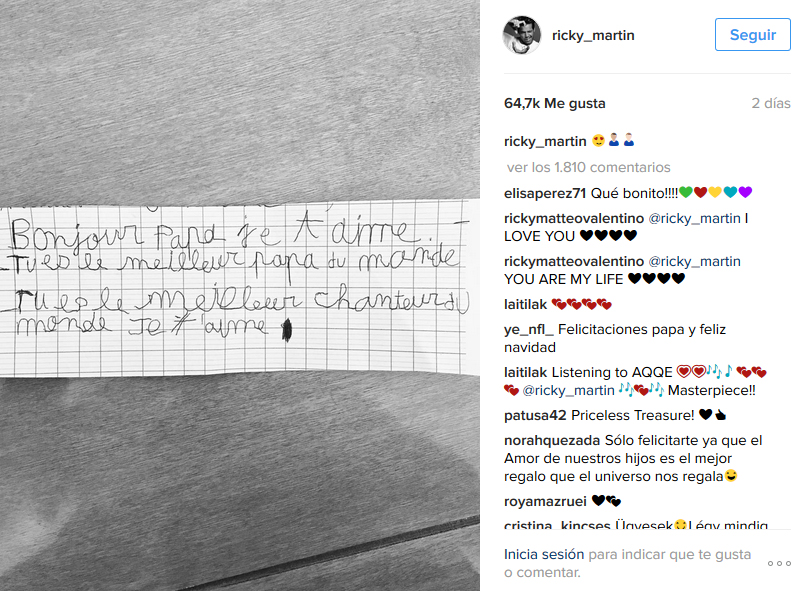 Bonjour Papa je t'aime.
Tu es le meilleur papa du monde
Tu es le meilleur chanteur du
monde Je t'aime
ricky_martin
Seguir
64,7k Me gusta
2 días
ricky_martin 😍
ver los 1.810 comentarios
elisaperez71 Qué bonito!!!!💚❤💛💙💜
rickymatteovalentino @ricky_martin I
LOVE YOU 🖤🖤🖤🖤
rickymatteovalentino @ricky_martin
YOU ARE MY LIFE 🖤🖤🖤🖤
laitilak 💕💕💕💕
ye_nfl_ Felicitaciones papa y feliz
navidad
laitilak Listening to AQQE
@ricky_martin 🎶💕🎶 Masterpiece!!
patusa42 Priceless Treasure!
norahquezada Sólo felicitarte ya que el
Amor de nuestros hijos es el mejor
regalo que el universo nos regala
royamazruei
cristina_kincses Ügyesek Légy mindig
Inicia sesión para indicar que te gusta
o comentar.